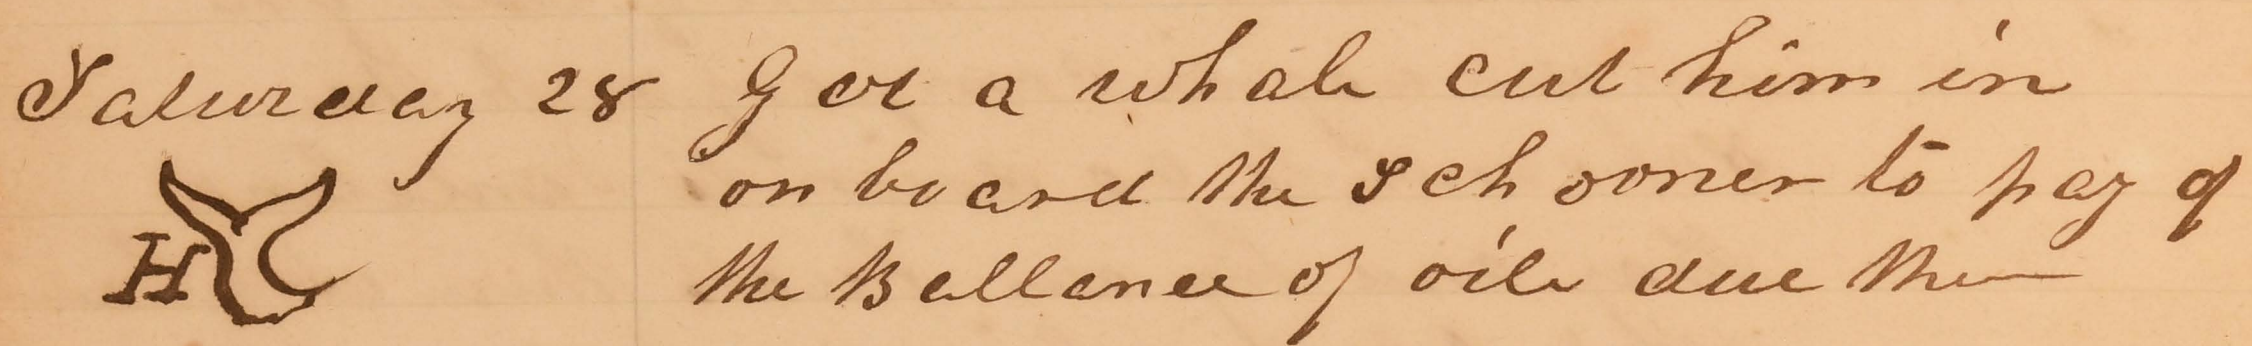 Saturday 28 Got a whale cut him in
on board the Schooner to pay of
the Ballance of oile due them
H